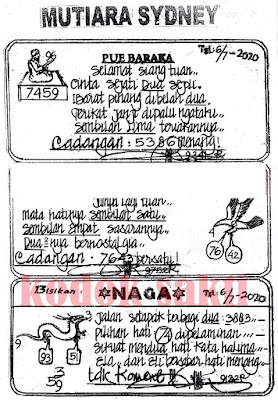 MUTIARA SYDNEY
PUE BARAKA
Tgl: 6/7-2020
96
7459
Selamat siang tuan..
Cinta sejati Dua sepi..
Ibarat pinang dibelah dua
Jerikat janji dipalu ngataru
Sembilan lima tawarannya..
Cadangan: 5386 menang!
mata hatinya sembilan satu..
Sembilan empat sasarannya..
Dua nya bernostalgia..
Cadangan: 7643 persatu!
9752R
76
42
Bisikan:
NAGA
Tgl: 6/7-2020
Jalan setapak terbagi dua -3883-
pilihan hati 74 dipelaminan..
Sikuat mendua hati kata halima..
Ela.. dan eli bersabar hati menang..
tdk Koment !!!
9
93
51
3
59